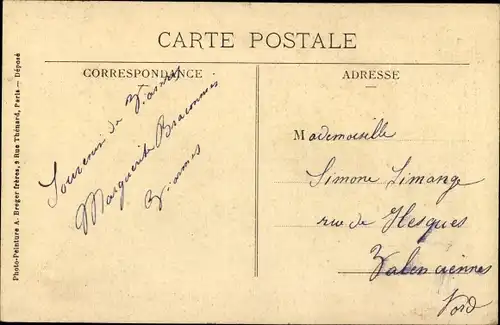 CARTE POSTALE
CORRESPONDANCE
Souvenir de Viarmes
Marguerite Braconnier
Viarmes
ADRESSE
Mademoiselle
Simone Limange
rue de Hesques
Valenciennes
Nord
Photo-Peinture A. Breger frères, 9 Rue Thénard, Paris — Déposé